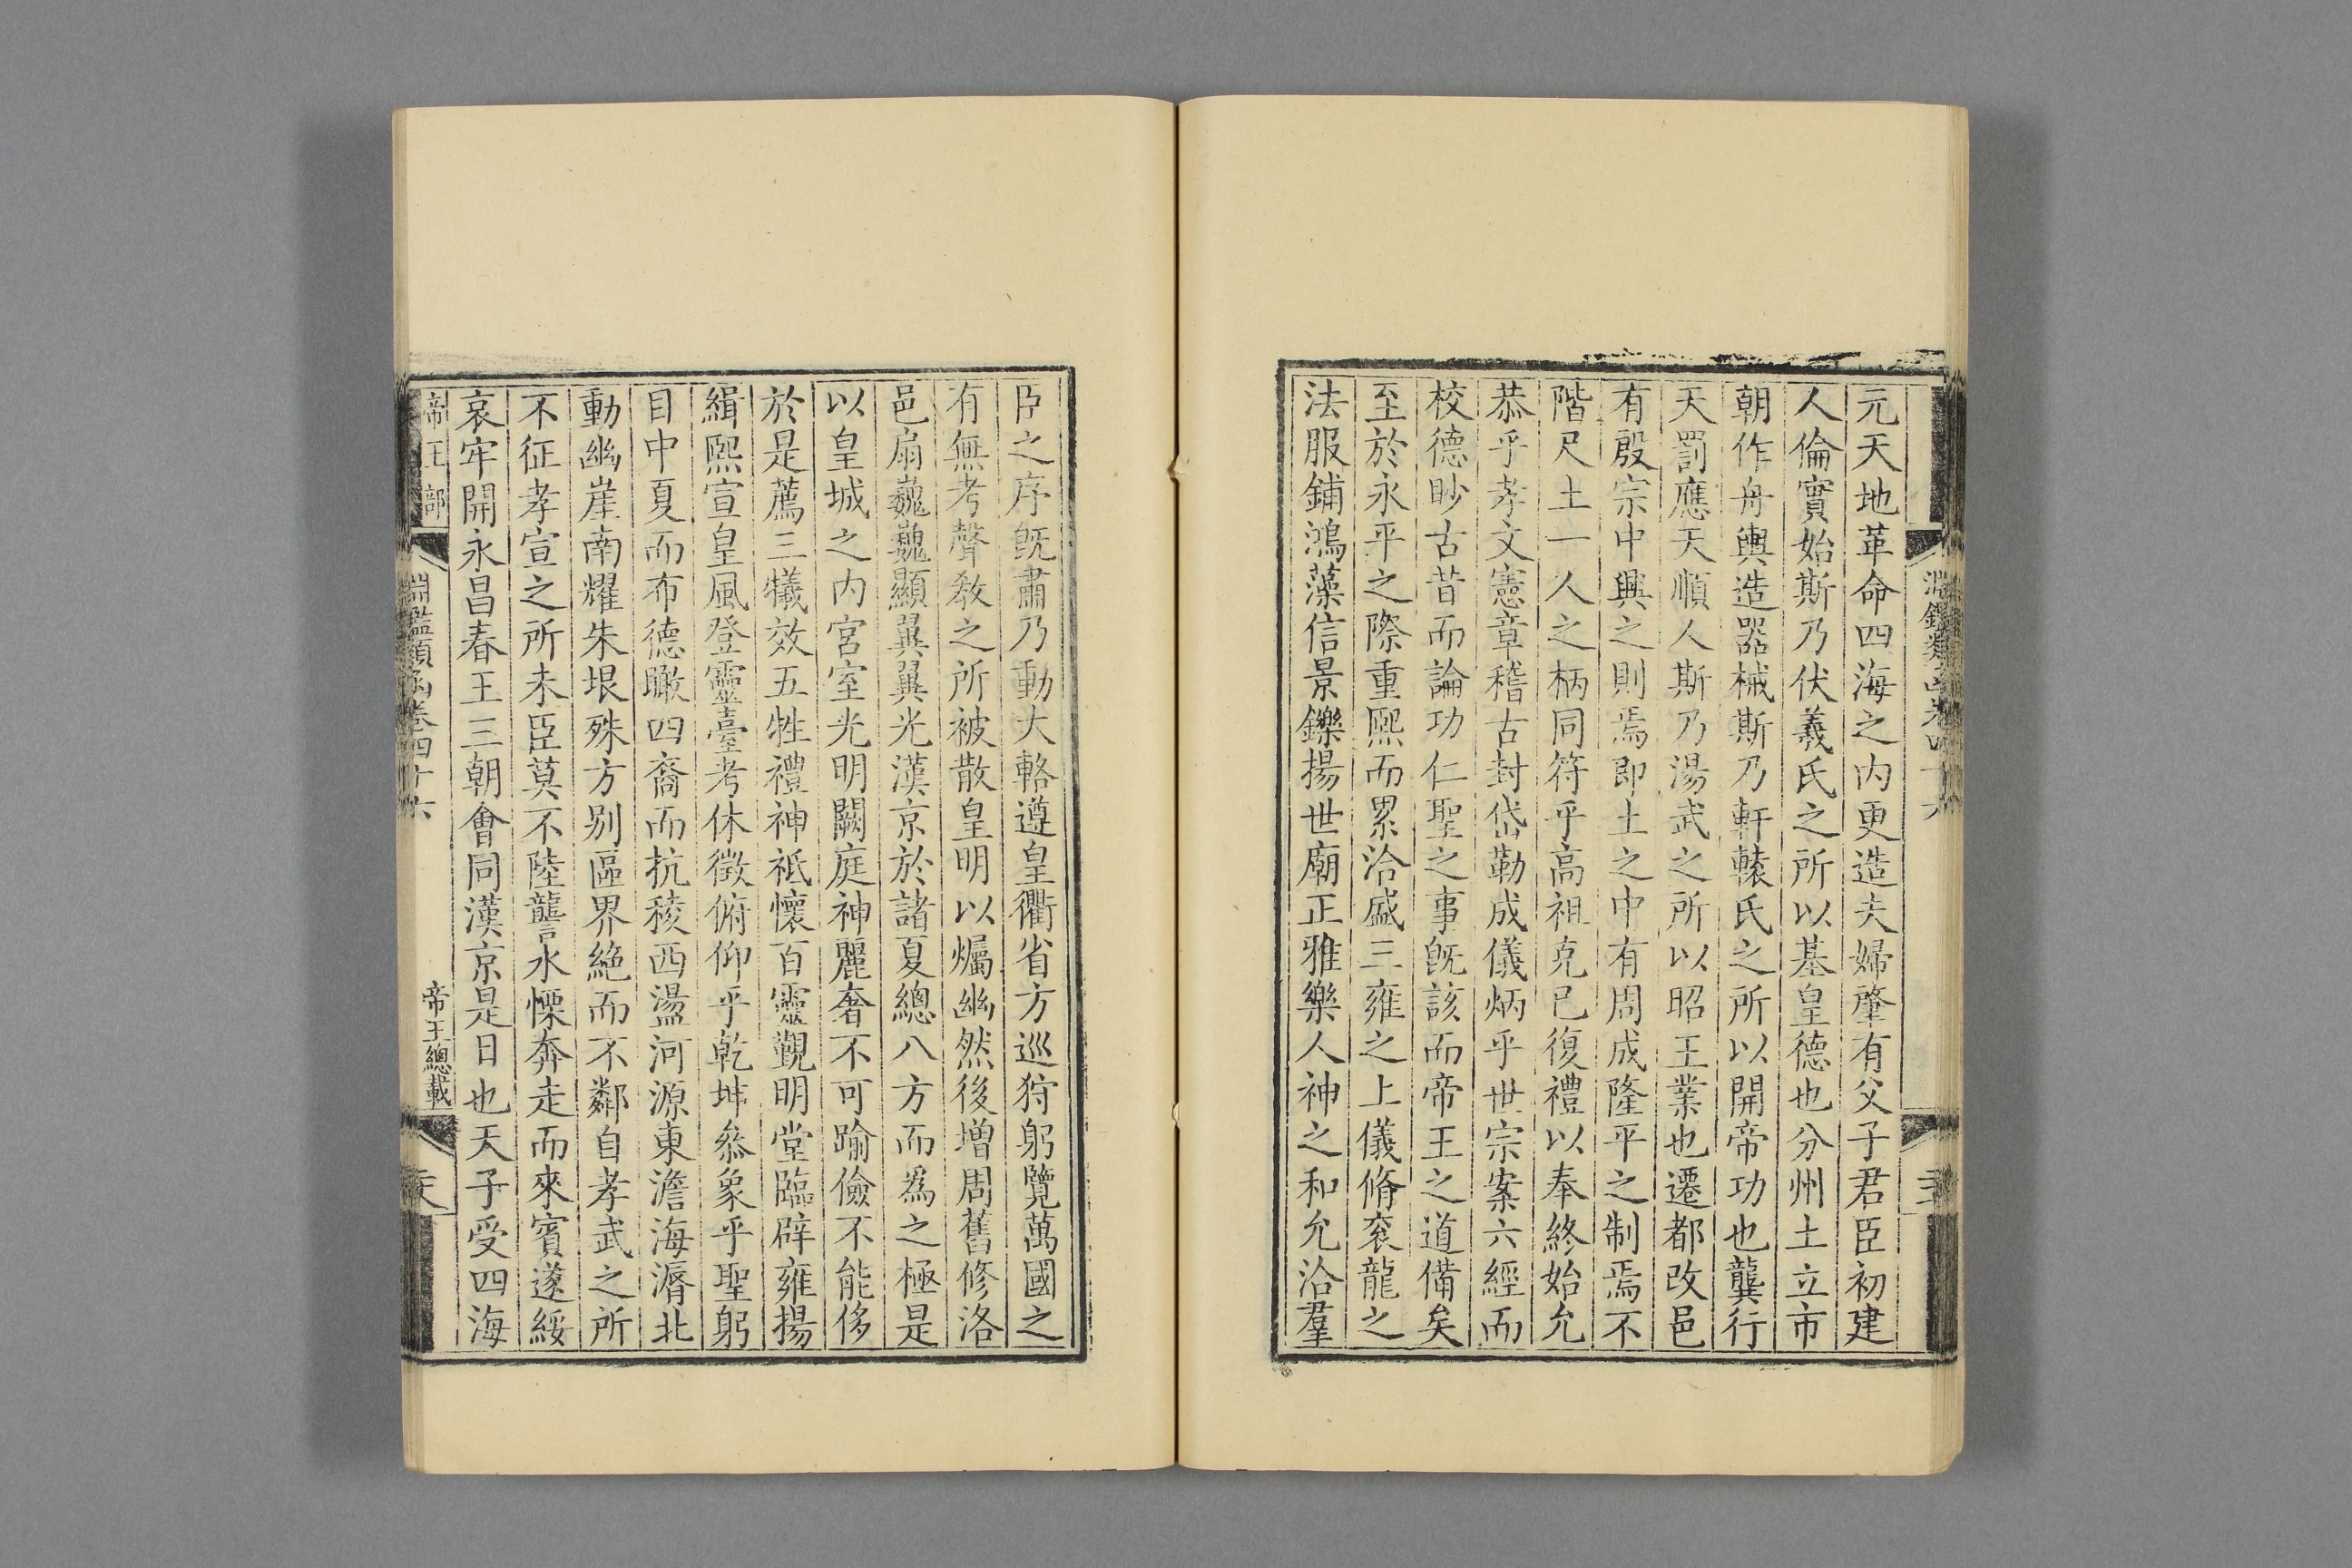 淵鑑類函卷四十六
元天地革命四海之内更造夫婦肇有父子君臣初建
人倫實始斯乃伏羲氏之所以基皇德也分州土立市
朝作舟輿造器械斯乃軒轅氏之所以開帝功也龔行
天罰應天順人斯乃湯武之所以昭王業也遷都改邑
有殷宗中興之則焉即土之中有周成隆平之制焉不
階尺土一人之柄同符乎高祖克己復禮以奉終始允
恭乎孝文憲章稽古封岱勒成儀炳乎世宗案六經而
校德眇古昔而論功仁聖之事旣該而帝王之道備矣
至於永平之際重熙而累洽盛三雍之上儀脩衮龍之
法服鋪鴻藻信景鑠揚世廟正雅樂人神之和允洽羣
臣之序旣肅乃動大輅遵皇衢省方巡狩躬覽萬國之
有無考聲敎之所被散皇明以爥幽然後增周舊修洛
邑扇巍巍顯翼翼光漢京於諸夏總八方而爲之極是
以皇城之内宮室光明闕庭神麗奢不可踰儉不能侈
於是薦三犧效五牲禮神祗懷百靈覲明堂臨辟雍揚
緝熙宣皇風登靈臺考休徵俯仰乎乾坤叅象乎聖躬
目中夏而布德瞰四裔而抗稜西盪河源東澹海漘北
動幽崖南耀朱垠殊方别區界絶而不鄰自孝武之所
不征孝宣之所未臣莫不陸讋水慄奔走而來賓遂綏
哀牢開永昌春王三朝會同漢京是日也天子受四海
帝王部
淵鑑類函卷四十六
帝王總載